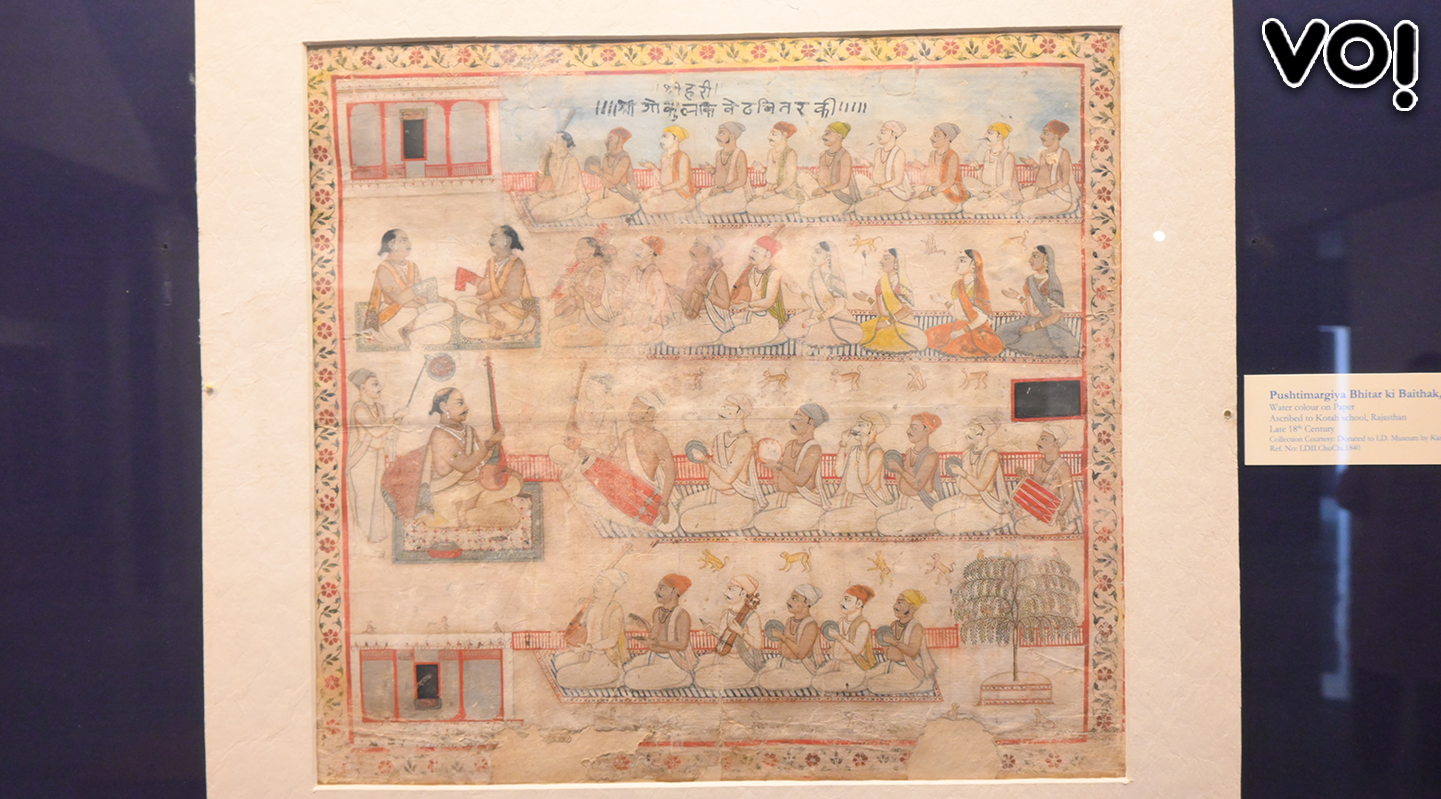 VO!
श्री हरी।
।।।।श्री गोकुलकि बेठकभितर की।।।।।
Pushtimargiya Bhitar ki Baithak,
Water colour on Paper
Ascribed to Kotah school, Rajasthan
Late 18th Century
Collection Courtesy: Donated to L.D. Museum by
Ref. No: